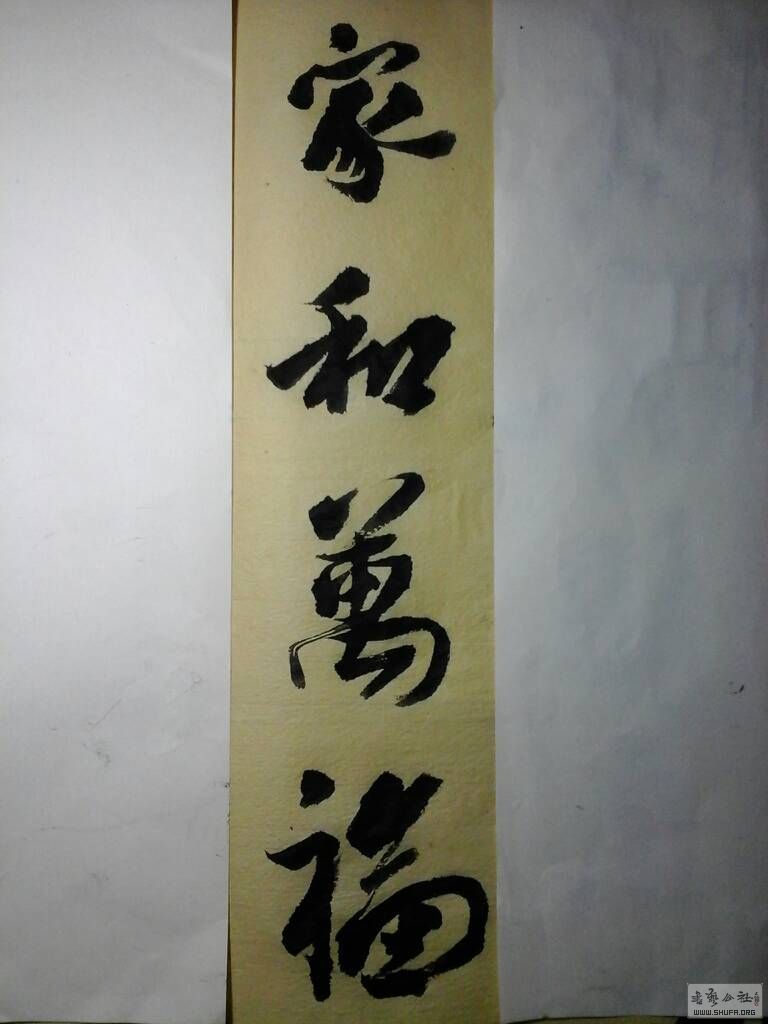 家和萬福
书艺公社
WWW.SHUFA.ORG